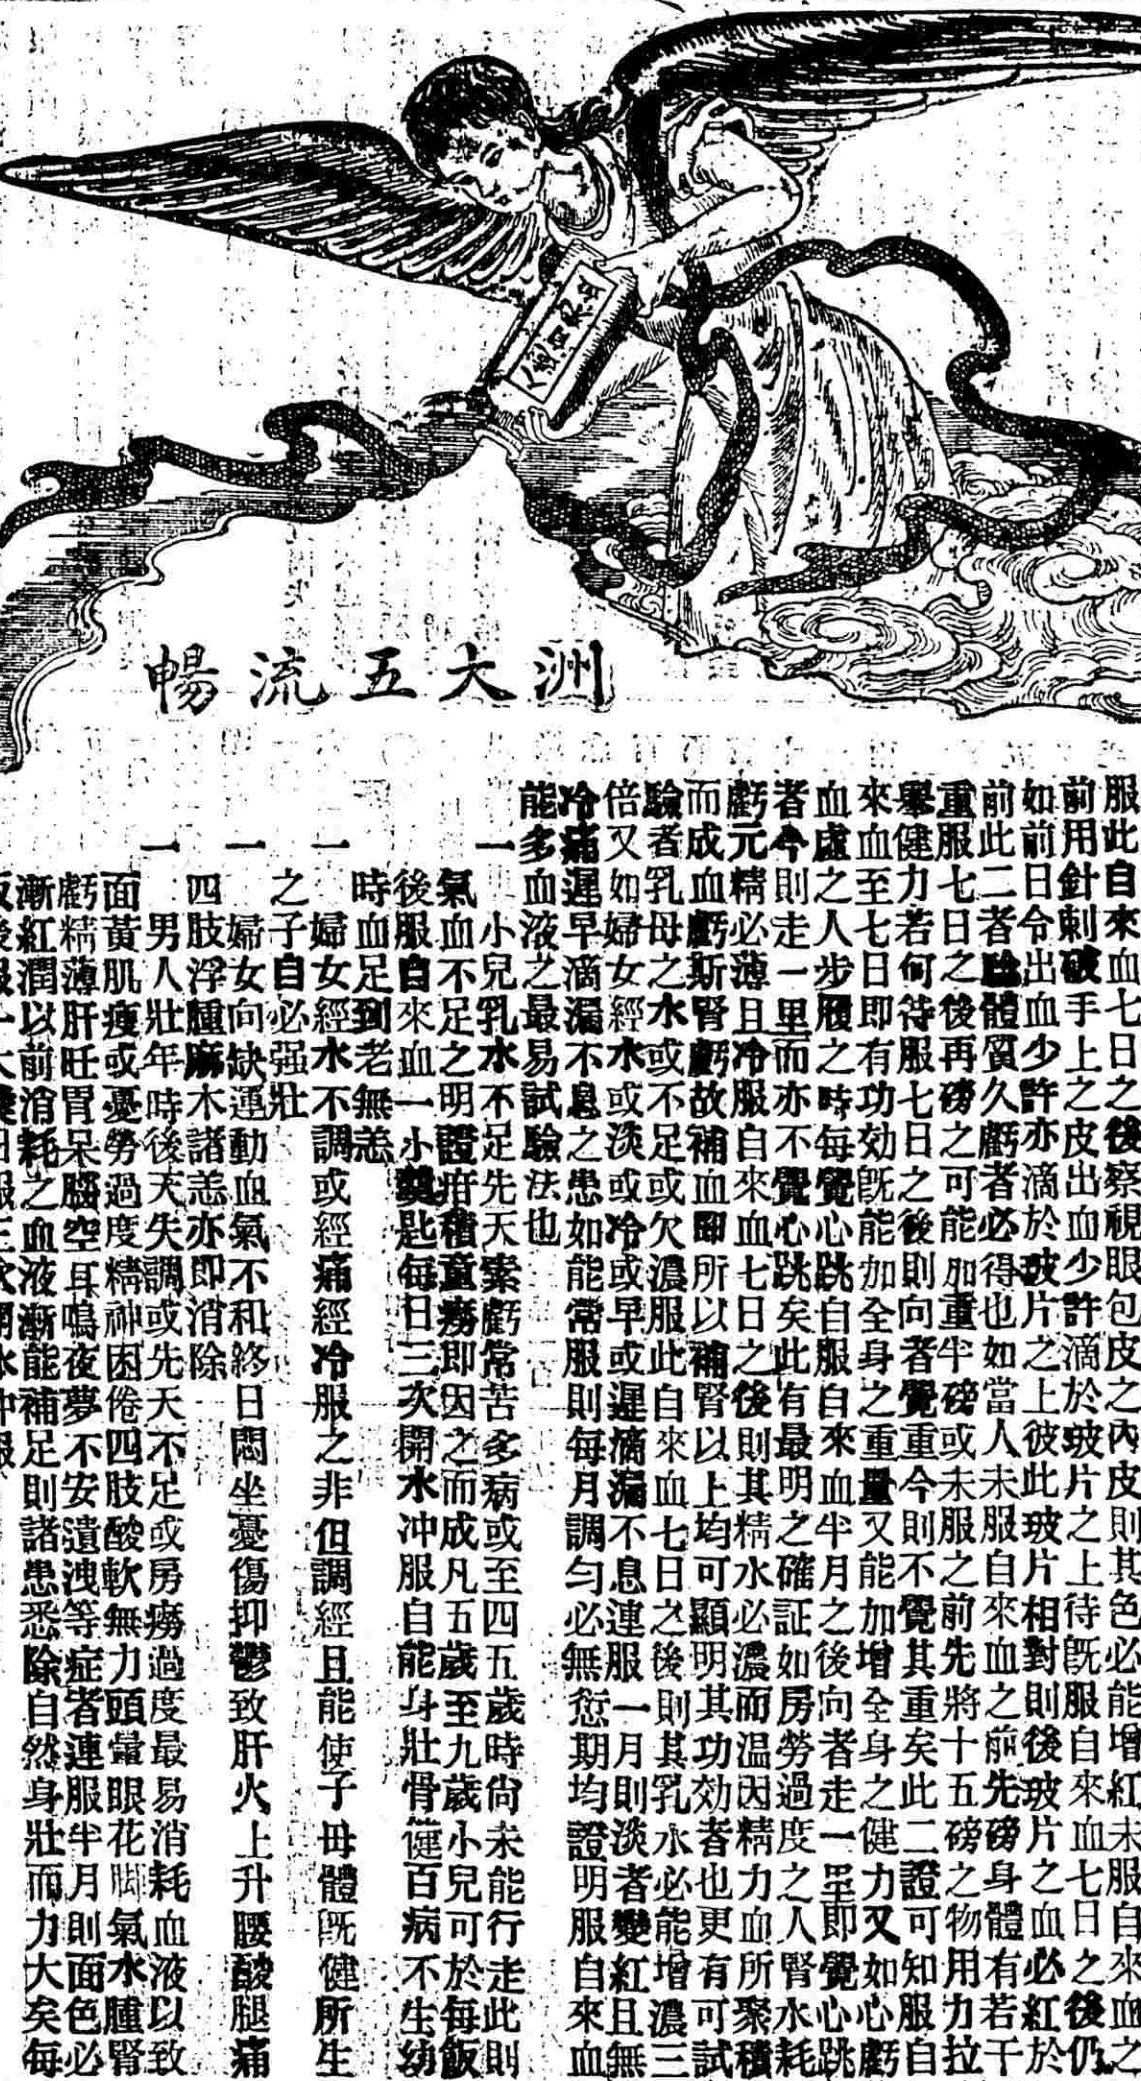 暢流五大洲
服此自來血七日之後察視眼包皮之內皮則其色必能增紅未服自來血之
前用針刺破手上之皮出血少許滴於玻片之上待既服自來血七日之後仍
如前日令出血少許亦滴於玻片之上彼此玻片相對則後玻片之血必紅於
前此二者驗體質久虧者必得也如當人未服自來血之前先磅身體有若干
重服七日之後再磅之可能加重半磅或未服之前先將十五磅之物用力拉
舉健力若何待服七日之後則向者覺重今則不覺其重矣此二證可知服自
來血至七日即有功効既能加全身之重量又能加增全身之健力又如心虧
血虛之人步履之時每覺心跳自服自來血半月之後向者走一里即覺心跳
者今則走一里而亦不覺心跳矣此有最明之確証如房勞過度之人腎水耗
虧元精必薄且冷服自來血七日之後則其精水必濃而温因精力血所聚積
而成血虧斯腎虧故補血即所以補腎以上均可顯明其功効者也更有可試
驗者乳母之水或不足或欠濃服此自來血七日之後則其乳水必能增濃三
倍又如婦女經水或淡或冷或早或遲滴漏不息連服一月則淡者變紅且無
冷痛遲早滴漏不息之患如能常服則每月調勻必無愆期均證明服自來血
能多血液之最易試驗法也
一 小兒乳水不足先天素虧常苦多病或至四五歲時尚未能行走此則
氣血不足之明證疳積童癆即因之而成凡五歲至九歲小兒可於每飯
後服自來血一小羹匙每日三次開水冲服自能身壯骨健百病不生幼
時血足到老無恙
一 婦女經水不調或經痛經冷服之非但調經且能使子母體既健所生
之子自必强壯
一 婦女向缺運動血氣不和終日悶坐憂傷抑鬱致肝火上升腰酸腿痛
四肢浮腫麻木諸恙亦即消除
一 男人壯年時後天失調或先天不足或房癆過度最易消耗血液以致
面黃肌瘦或憂勞過度精神困倦四肢酸軟無力頭暈眼花脚氣水腫腎
虧精薄肝旺胃呆腦空耳鳴夜夢不安遺洩等症者連服半月則面色必
漸紅潤以前消耗之血液漸能補足則諸患悉除自然身壯而力大矣每